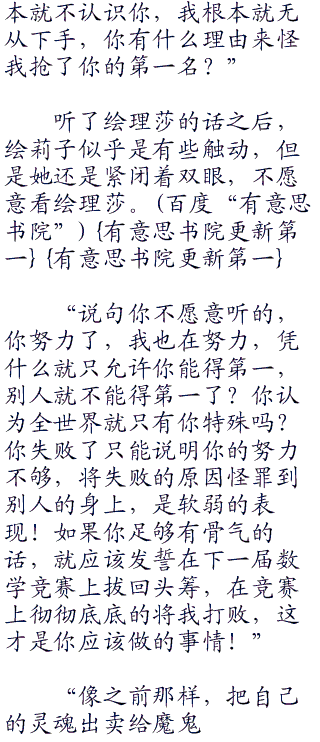 本就不认识你，我根本就无
从下手，你有什么理由来怪
我抢了你的第一名？”
听了绘理莎的话之后，
绘莉子似乎是有些触动，但
是她还是紧闭着双眼，不愿
意看绘理莎。(百度“有意思
书院”) {有意思书院更新第
一} {有意思书院更新第一}
“说句你不愿意听的，
你努力了，我也在努力，凭
什么就只允许你能得第一，
别人就不能得第一了？你认
为全世界就只有你特殊吗？
你失败了只能说明你的努力
不够，将失败的原因怪罪到
别人的身上，是软弱的表
现！如果你足够有骨气的
话，就应该发誓在下一届数
学竞赛上拔回头筹，在竞赛
上彻彻底底的将我打败，这
才是你应该做的事情！”
“像之前那样，把自己
的灵魂出卖给魔鬼